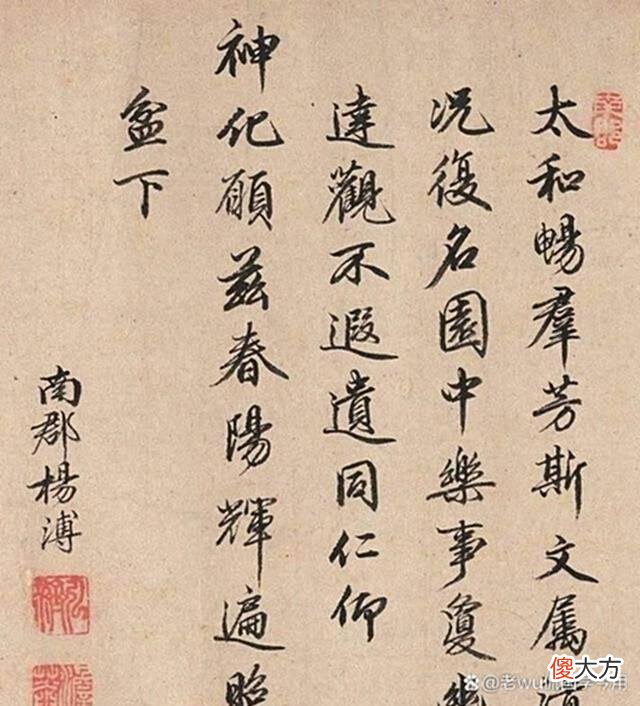 太和暢羣芳斯文屬
況復名園中樂事
達觀不遐遺同仁仰
神化願茲春陽輝遍
盆下
南郡楊溥
傻大方